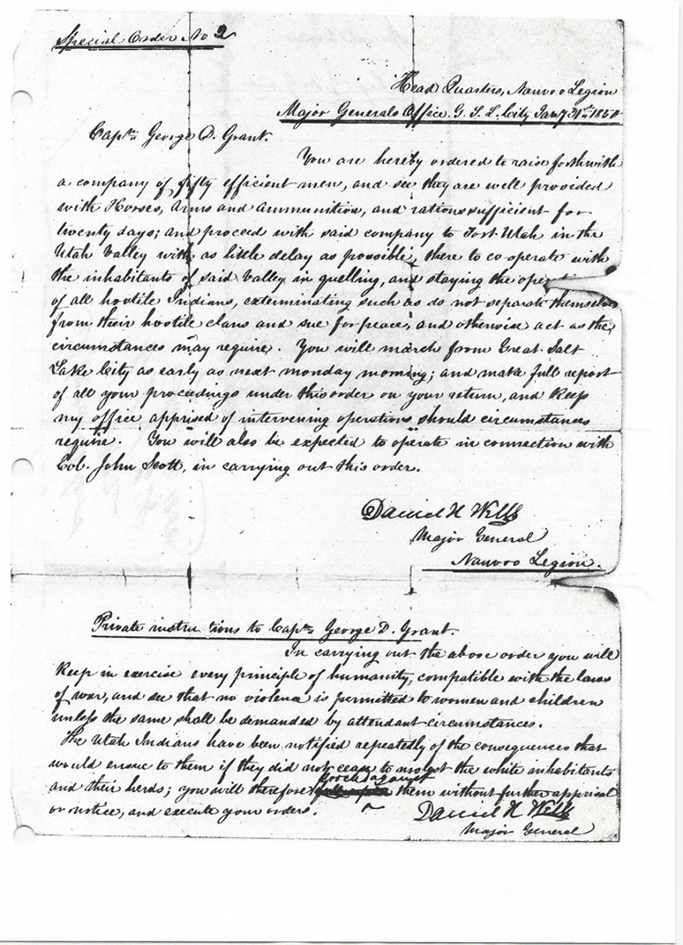 Special Order No 2
Head Quarters, Nauvoo Legion
Major Generals Office. G. S. L. City Jany 31st 1850
Captn George D. Grant.
You are hereby ordered to raise forthwith
a company of fifty efficient men, and see they are well provided
with Horses, Arms and Ammunition, and rations sufficient for
twenty days; and proceed with said company to Fort Utah in the
Utah Valley with as little delay as possible, there to co operate with
the inhabitants of said Valley in quelling, and staying the
of all hostile Indians, exterminating such as do not separate themselves
from their hostile clans and sue for peace, and otherwise act as the
circumstances may require. You will march from Great Salt
Lake City as early as next monday morning; and make full report
of all your proceedings under this order on your return, and keep
my office apprised of intervening operations should circumstances
require. You will also be expected to operate in connection with
Col. John Scott, in carrying out this order.
Daniel H Wells
Major General
Nauvoo Legion.
Private instructions to Captn George D. Grant.
In carrying out the above order you will
keep in exercise every principle of humanity, compatible with the laws
of war, and see that no violence is permitted to women and children
unless the same shall be demanded by attendant circumstances.
The Utah Indians have been notified repeatedly of the consequences that
would ensue to them if they did not cease to molest the white inhabitants
and their herds; you will therefore proceed against them without further apprisal
or notice, and execute your orders.
Daniel H Wells
Major General